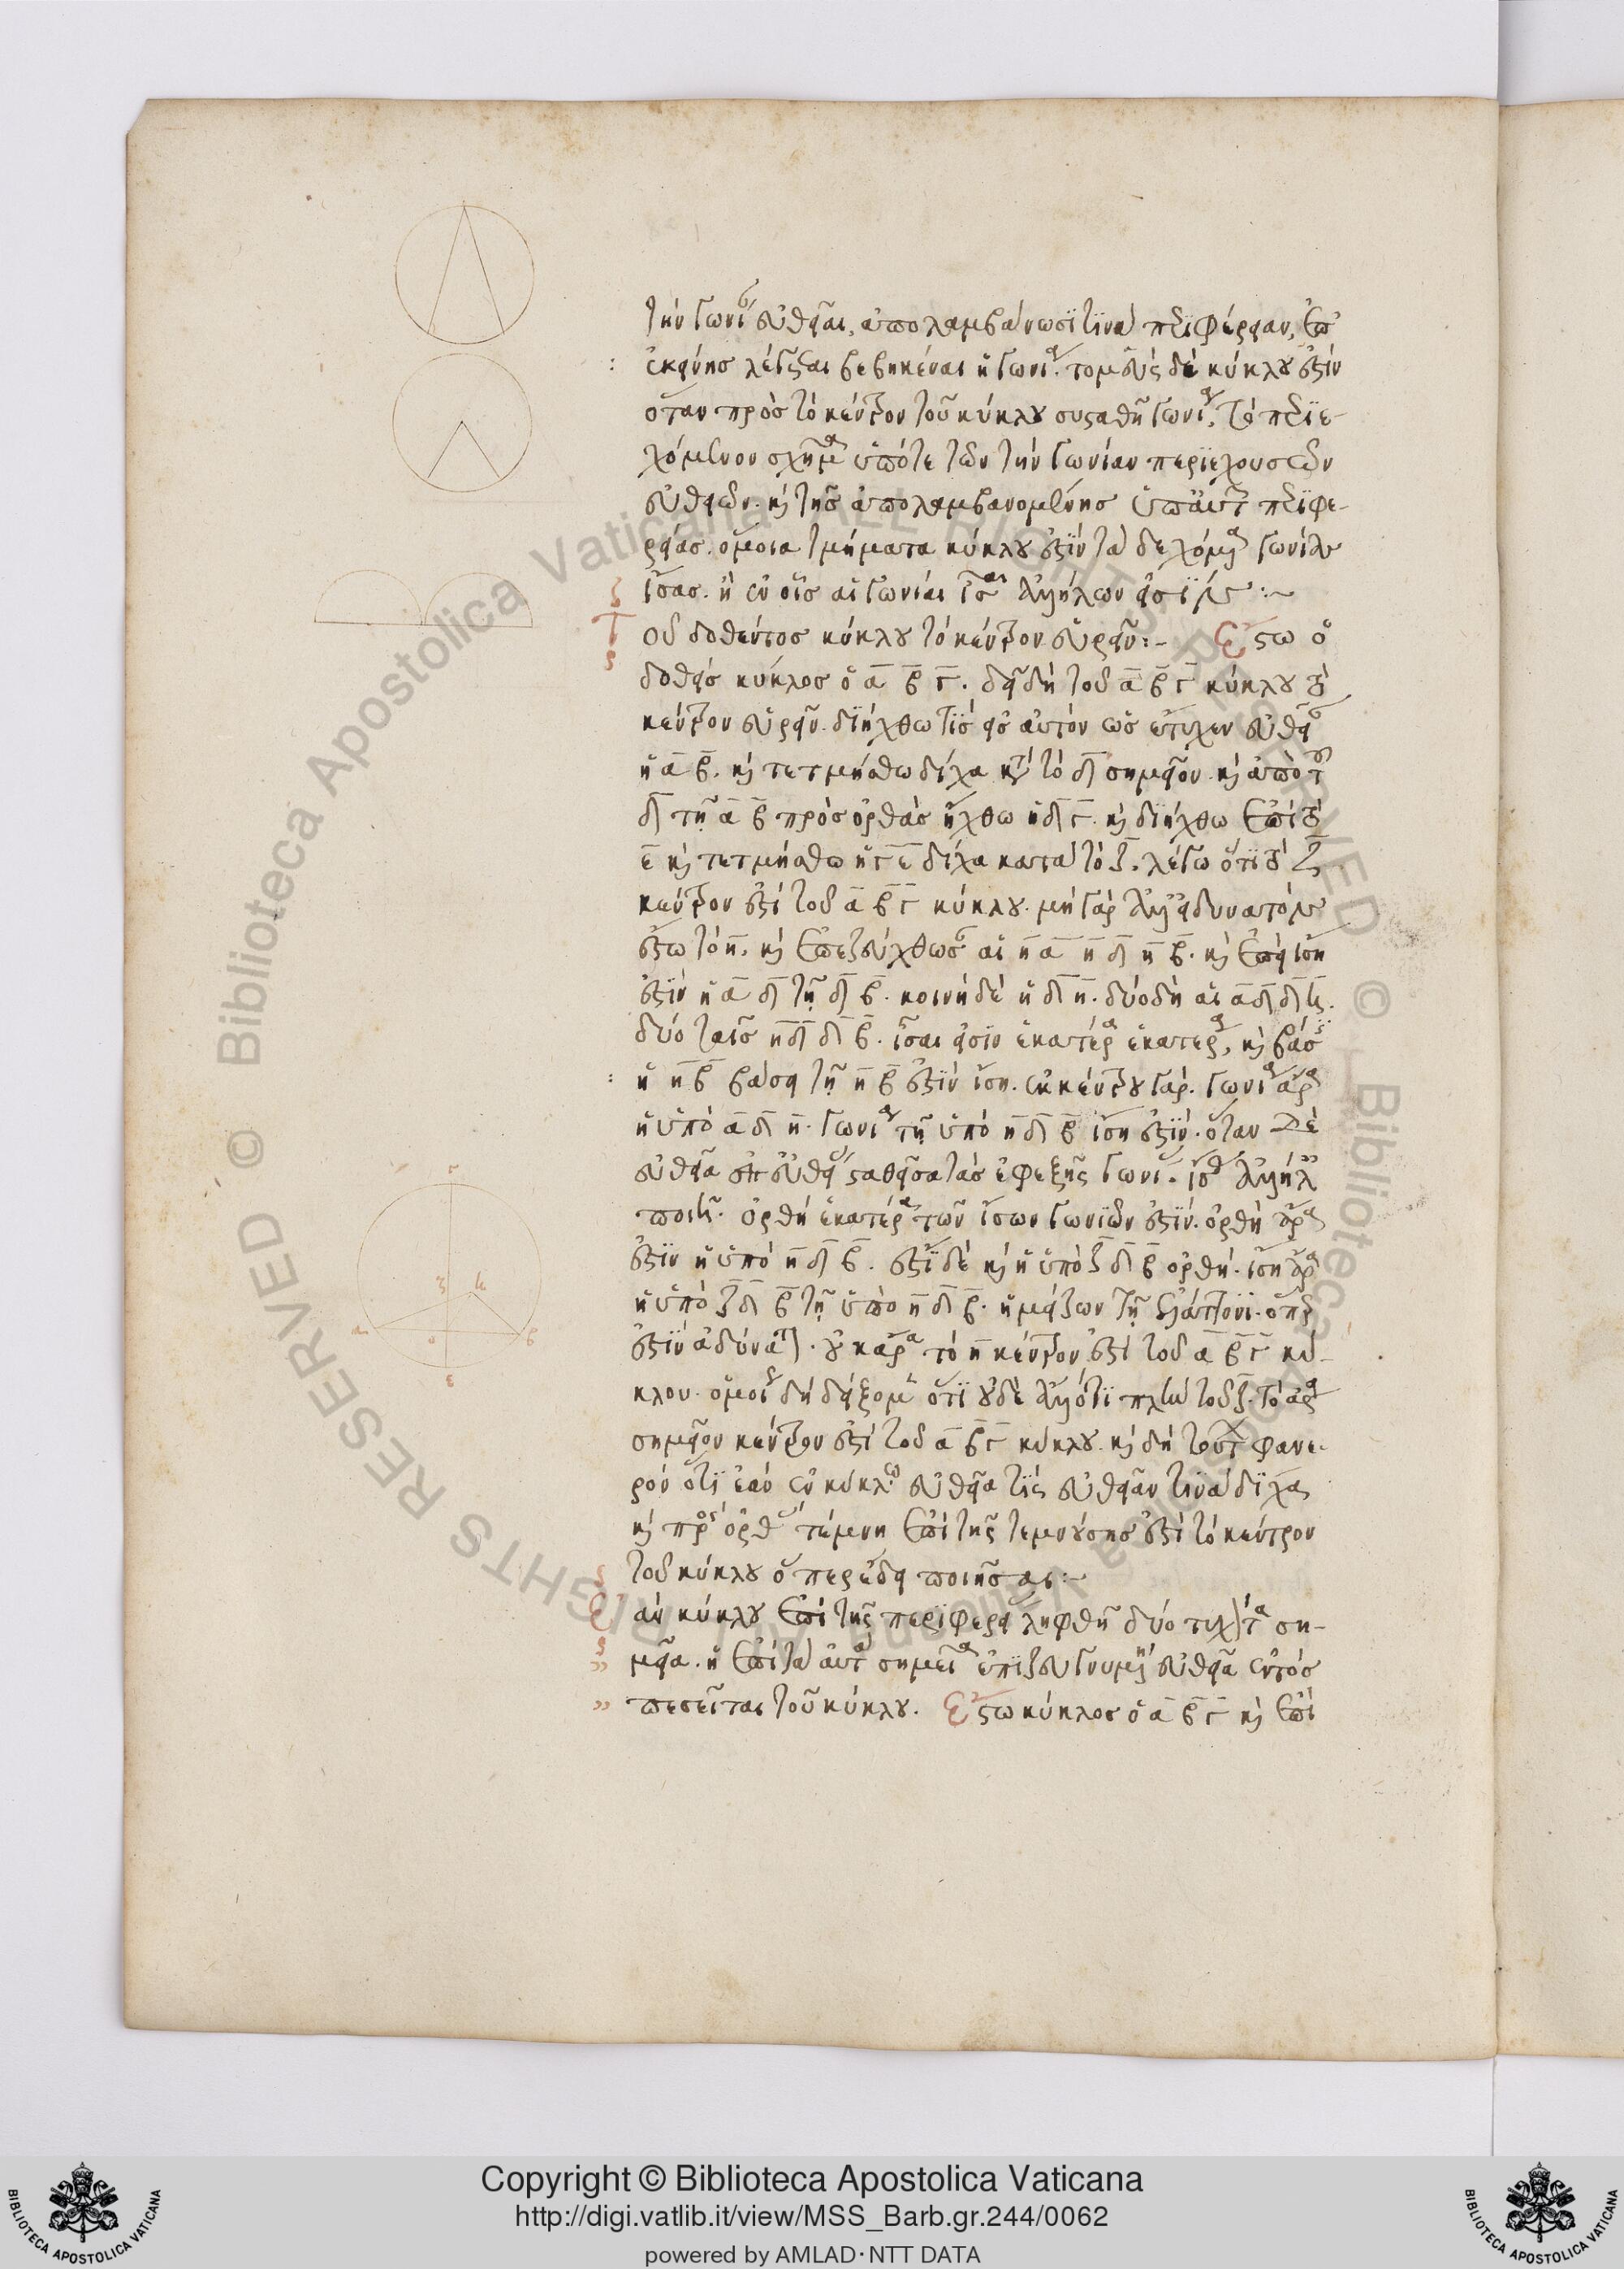 τὴν γωνίαν εὐθεῖαι, ἀπολαμβάνωσί τινα περιφέρειαν, ἐπ'
ἐκείνης λέγεται βεβηκέναι ἡ γωνία. τομεὺς δὲ κύκλου ἐστὶν
ὅταν πρὸς τὸ κέντρον τοῦ κύκλου συσταθῇ γωνία, τὸ περιε-
χόμενον σχῆμα ὑπό τε τῶν τὴν γωνίαν περιεχουσῶν
εὐθειῶν. καὶ τῆς ἀπολαμβανομένης ὑπ' αὐτῶν περιφε-
ρείας. ὅμοια τμήματα κύκλου ἐστὶν τὰ δεχόμενα γωνίας
ἴσας. ἢ ἐν οἷς αἱ γωνίαι ἴσαι ἀλλήλων εἰσίν:~
Τοῦ δοθέντος κύκλου τὸ κέντρον εὑρεῖν:- Ἔστω ὁ
δοθεὶς κύκλος ὁ α β γ. δεῖ δὴ τοῦ α β γ κύκλου τὸ
κέντρον εὑρεῖν. διήχθω τις εἰς αὐτὸν ὡς ἔτυχεν εὐθεῖα
ἡ α β. καὶ τετμήσθω δίχα κατὰ τὸ δ σημεῖον. καὶ ἀπὸ τοῦ
δ τῇ α β πρὸς ὀρθὰς ἤχθω ἡ δ γ. καὶ διήχθω ἐπὶ τὸ
ε καὶ τετμήσθω ἡ γ ε δίχα κατὰ τὸ ζ. λέγω ὅτι τὸ ζ
κέντρον ἐστὶ τοῦ α β γ κύκλου. μὴ γάρ ἀλλ' εἰ δυνατόν
ἔστω τὸ η. καὶ ἐπεζεύχθωσαν αἱ η α η δ η β. καὶ ἐπεὶ ἴση
ἐστὶν ἡ α δ τῇ δ β. κοινὴ δὲ ἡ δ η. δύο δὴ αἱ α δ δ η.
δύο ταῖς η δ δ β. ἴσαι εἰσὶν ἑκατέρα ἑκατέρα, καὶ βάσις
ἡ η β βάσει τῇ η β ἐστὶν ἴση. ἐκ κέντρου γάρ. γωνία ἄρα
ἡ ὑπὸ α δ η. γωνία τῇ ὑπὸ η δ β ἴση ἐστίν. ὅταν δὲ
εὐθεῖα ἐπ' εὐθεῖαν σταθεῖσα τὰς ἐφεξῆς γωνίας ἴσας ἀλλήλαις
ποιῇ. ὀρθὴ ἑκατέρα τῶν ἴσων γωνιῶν ἐστίν. ὀρθὴ ἄρα
ἐστὶν ἡ ὑπὸ η δ β. ἐστὶ δὲ καὶ ἡ ὑπὸ ζ δ β ὀρθή. ἴση ἄρα
ἡ ὑπὸ ζ δ β τῇ ὑπὸ η δ β. ἡ μείζων τῇ ἐλάττονι. ὅπερ
ἐστὶν ἀδύνατον. οὐκ ἄρα τὸ η κέντρον ἐστὶ τοῦ α β γ κύ-
κλου. ὁμοίως δὴ δείξομεν ὅτι οὐδὲ ἄλλο τι πλὴν τοῦ ζ. τὸ ἄρα
σημεῖον κέντρον ἐστὶ τοῦ α β γ κύκλου. καὶ δὴ τοῦτο φανε-
ρὸν ὅτι ἐὰν ἐν κύκλω εὐθεῖα τις εὐθεῖαν τινὰ δίχα
καὶ πρὸς ὀρθὰς τέμνη ἐπὶ τῆς τεμνούσης ἐστὶ τὸ κέντρον
τοῦ κύκλου ὅπερ ἔδει ποιῆσαι:~
Ἐὰν κύκλου ἐπὶ τῆς περιφερείας ληφθῇ δύο τυχόντα ση-
μεῖα. ἡ ἐπὶ τὰ αὐτὰ σημεῖα ἐπιζευγνυμένη εὐθεῖα ἐντὸς
πεσεῖται τοῦ κύκλου. Ἔστω κύκλος ὁ α β γ καὶ ἐπὶ
Copyright © Biblioteca Apostolica Vaticana
http://digi.vatlib.it/view/MSS_Barb.gr.244/0062
powered by AMLAD·NTT DATA
BIBLIOTECA APOSTOLICA VATICANA
BIBLIOTECA APOSTOLICA VATICANA